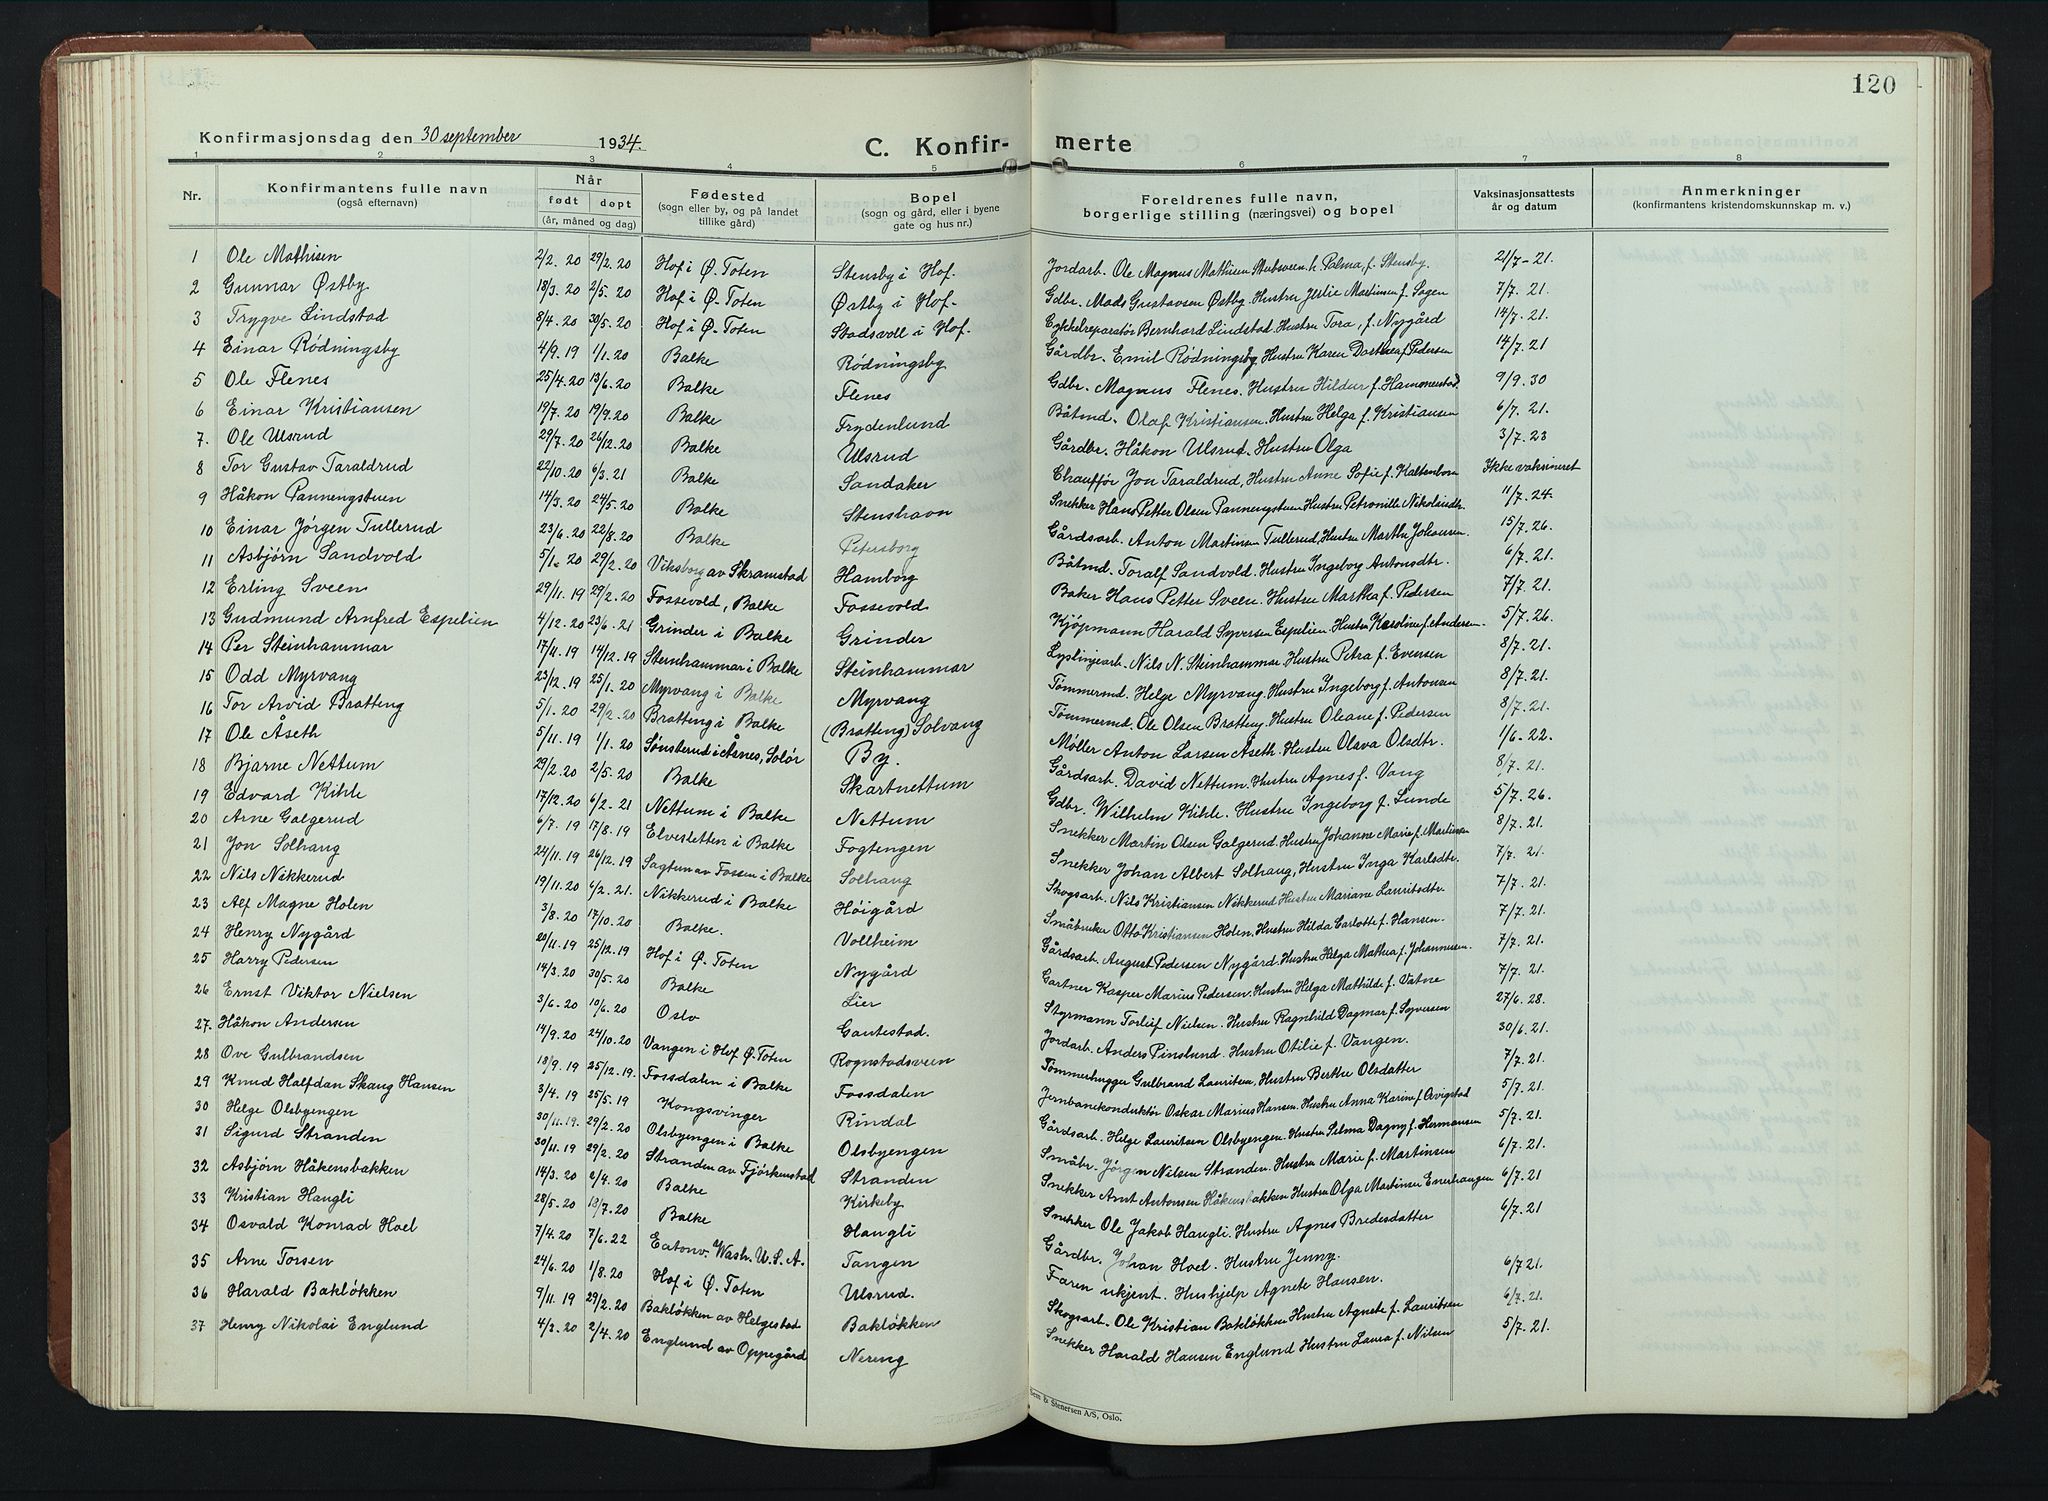 120
Konfirmasjonsdag den 30 september 1934.
C. Konfirmerte
1 2 3 4 5 6 7 8
Nr. Konfirmantens fulle navn (også efternavn) Når født døpt (år, måned og dag) Fødested (sogn eller by, og på landet tillike gård) Bopel (sogn og gård, eller i byene gate og hus nr.) Foreldrenes fulle navn, borgerlige stilling (næringsvei) og bopel Vaksinasjonsattests år og datum Anmerkninger (konfirmantens kristendomskunnskap m. v.)
1 Ole Mathisen 2/2. 20 29/2. 20 Hof i Ø. Toten Stensby i Hof. Jordarb. Ole Magnus Mathisen Stubsveen. h. Palma, f. Stensby. 21/7-21.
2 Gunnar Østby 18/3. 20 2/5. 20 Hof i Ø. Toten Østby i Hof. Gdbr. Mads Gustavsen Østby. Hustru Julie Martinsen f. Sogen 7/7. 21.
3 Trygve Lindstad 8/4. 20 30/5. 20 Hof i Ø. Toten Stadsvoll i Hof. Cykkelreparatør Bernhard Lindstad. Hustru Tora, f. Nygård 14/7. 21.
4 Einar Rødningsby 4/9. 19 1/1. 20 Balke Rødningsby Gårdbr. Emil Rødningsby. Hustru Karen Dorthea f. Pedersen 14/7. 21
5 Ole Flenes 25/4. 20 13/6. 20 Balke Flenes Gdbr. Magnus Flenes. Hustru Hildur f. Hammerstad. 9/9. 30
6 Einar Kristiansen 19/7. 20 19/9. 20 Balke Frydenlund Båtmd. Olaf Kristiansen. Hustru Helga f. Kristiansen 6/7. 21.
7. Ole Ulsrud 29/7. 20 26/12. 20 Balke Ulsrud Gårdbr. Håkon Ulsrud. Hustru Olga 3/7. 23
8 Tor Gustav Taraldrud 22/10. 20 6/3. 21 Balke Sandaker Chauffør Jon Taraldrud, Hustru Anne Sofie f. Kaltenborn Ikke vaksineret
9 Håkon Pannengstuen 14/3. 20 24/5. 20 Balke Stenshavn Snekker Hans Petter Olsen Pannengstuen Hustru Petronille Nikolaidtr. 11/7. 24.
10 Einar Jørgen Tullerud 23/6. 20 22/8. 20 Balke Petersborg Gårdsarb. Anton Martinsen Tullerud, Hustru Martha Johansen. 15/7. 26.
11 Asbjørn Sandvold 5/1. 20 29/2. 20 Viksborg av Skramstad Hamborg Båtmd. Toralf Sandvold. Hustru Ingeborg Antonsdtr. 6/7. 21.
12 Erling Sveen 29/11. 19 29/2. 20 Fossevold, Balke Fossevold Baker Hans Petter Sveen. Hustru Martha f. Pedersen 7/7. 21.
13 Gudmund Arnfred Espelien 4/12. 20 23/6. 21 Grinder i Balke Grinder Kjøpmann Harald Syversen Espelien. Hustru Karoline f. Andersen. 5/7. 26.
14 Per Steinhammar 17/11. 19 14/12. 19 Steinhammar i Balke Steinhammar Lyslinjearb. Nils N. Steinhammar Hustru Petra f. Evensen 8/7. 21.
15 Odd Myrvang 23/12. 19 25/1. 20 Myrvang i Balke Myrvang Tømmermd. Helge Myrvang. Hustru Ingeborg f. Antonsen 8/7. 21.
16 Tor Arvid Bratteng 5/1. 20 29/2. 20 Bratteng i Balke (Bratteng) Solvang Tømmermd. Ole Olsen Bratteng. Hustru Oleane f. Pedersen 8/7. 21.
17 Ole Åseth 5/11. 19 1/1. 20 Sønsterud i Åsnes, Solør By. Møller Anton Larsen Åseth. Hustru Olava Olsdtr. 1/6-22.
18 Bjarne Nettum 29/2. 20 2/5. 20 Balke Skartnettum Gårdsarb. David Nettum. Hustru Agnes f. Vang 8/7. 21.
19 Edvard Kihle 17/12. 20 6/2. 21 Nettum i Balke Nettum Gdbr. Wilhelm Kihle. Hustru Ingeborg f. Lunde 5/7. 26.
20 Arne Galgerud 6/7. 19 17/8. 19 Elvesletten i Balke Fogtengen Snekker Martin Olsen Galgerud. Hustru Johanne Marie f. Martinsen 8/7. 21.
21 Jon Solhaug 24/11. 19 26/12. 19 Sagtun av Fossen i Balke Solhaug Snekker Johan Albert Solhaug, Hustru Inga Karlsdtr. 7/7. 21.
22 Nils Nikkerud 19/11. 20 6/2. 21. Nikkerud i Balke Høigård Skogsarb. Nils Kristiansen Nikkerud Hustru Mariane Lauritsdtr. 7/7. 21.
23 Alf Magne Holen 3/8. 20 17/10. 20 Balke. Vollheim Småbruker Otto Kristiansen Holen. Hustru Hilda Carlotte f. Hansen. 7/7. 21.
24 Henry Nygård 20/11. 19 25/12. 19 Hof i Ø. Toten Nygård Gårdsarb. August Pedersen Nygård. Hustru Helga Mathea f. Johannesen. 7/7. 21.
25 Harry Pedersen 14/3. 20 30/5. 20 Balke Lier Gartner Kasper Marius Pedersen. Hustru Helga Mathilde f. Vatne 7/7. 21.
26 Ernst Viktor Nielsen 3/6. 20 10/6. 20 Oslo Gautestad. Styrmann Torleif Nielsen. Hustru Ragnhild Dagmar f. Syversen 27/6. 28.
27. Håkon Andersen 14/9. 20 24/10. 20 Vangen i Hof Ø. Toten Rognstadsveen Jordarb. Anders Pinslund. Hustru Otilie f. Vangen. 30/6. 21.
28 Ove Gulbrandsen 18/9. 19 25/12. 19. Fossdalen i Balke Fossdalen Tømmerhugger Gulbrand Lauritsen, Hustru Berthe Olsdatter 7/7. 21.
29 Knud Halfdan Skaug Hansen 3/4. 19 25/5. 19 Kongsvinger Rindal Jernbanekonduktør Oskar Marius Hansen. Hustru Anna Karine f. Arvigstad 5/7. 21.
30 Helge Olsbyengen 30/11. 19. 29/2. 20 Olsbyengen i Balke Olsbyengen Gårdsarb. Helge Lauritsen Olsbyengen. Hustru Selma Dagny f. Hermansen 5/7. 21.
31 Sigurd Stranden 30/11. 19 29/2. 20 Stranden av Fjørkenstad Stranden Småbr. Jørgen Nilsen Stranden. Hustru Marie f. Martinsen 6/7. 21.
32 Asbjørn Håkensbakken 14/3. 20 2/4. 20 Balke Kirkeby Snekker Arnt Antonsen Håkensbakken Hustru Olga Martinsen Enerhaugen 6/7. 21
33 Kristian Haugli 28/5. 20 18/7. 20 Balke Haugli Snekker Ole Jakob Haugli. Hustru Agnes Bredesdatter 6/7. 21
34 Osvald Konrad Hoel 7/4. 20 7/6. 22 Eatonv. Wash. U.S.A. Tangen Gårdbr. Johan Hoel. Hustru Jenny.
35 Arne Torsen 24/6. 20 1/8. 20 Hof i Ø. Toten Ulsrud. Faren ukjent. Hushjelp Agnete Hansen. 6/7 21.
36 Harald Bakløkken 9/11. 19 29/2. 20 Bakløkken av Helgestad Bakløkken Skogsarb. Ole Kristian Bakløkken Hustru Agnete f. Lauritsen 6/7. 21.
37 Henry Nikolai Englund 4/2. 20 2/4. 20 Englund av Oppegård Nereng Snekker Harald Hansen Englund Hustru Laura f. Nilsen 5/7. 21.
Sem & Stenersen A/S, Oslo.